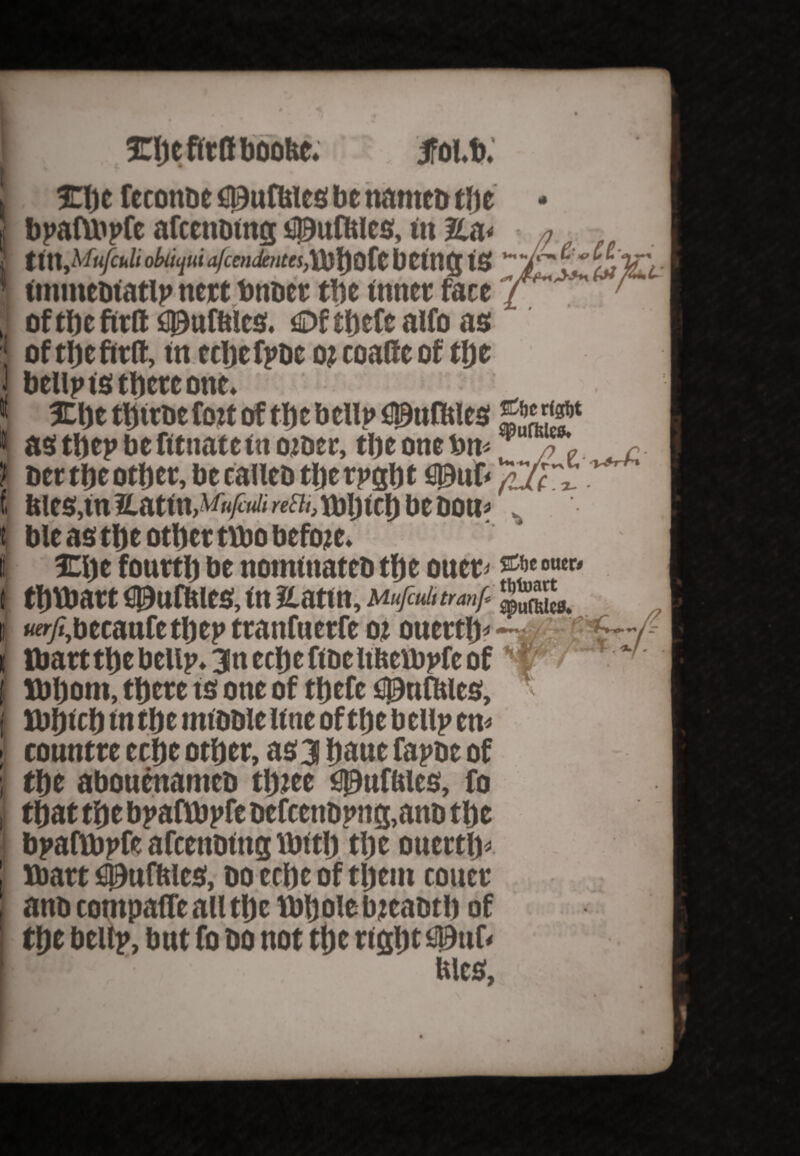 The first booke. Fol.v.
The seconde Muskles be named the
byaswyse ascending Muskles, in La-
tin, Musculi obliqui ascendentes, whose being is
immediatly next vnder the inner face
of the first Muskles. Of these also as
of the first, in eche syde or coaste of the
belly is there one.
The thirde sort of the belly Muskles
as they be situate in order, the one vn-
der the other, be called the ryght Mus-
kles, in Latin, Musculi recti, which be dou-
ble as the other two before.
The fourth be nominated the ouer-
thwart Muskles, in Latin, Musculi trans-
uersi, because they transuerse or ouerth-
wart the belly. In eche side likewyse of
whom, there is one of these Muskles,
which in the middle line of the belly en-
countre eche other, as I haue sayde of
the abouenamed three Muskles, so
that the byaswyse descendyng, and the
byaswyse ascending with the ouerth-
wart Muskles, do eche of them couer
and compasse all the whole breadth of
the belly, but so do not the right Mus-
kles,
The right
Muskles.
The ouer-
thwart
Muskles.